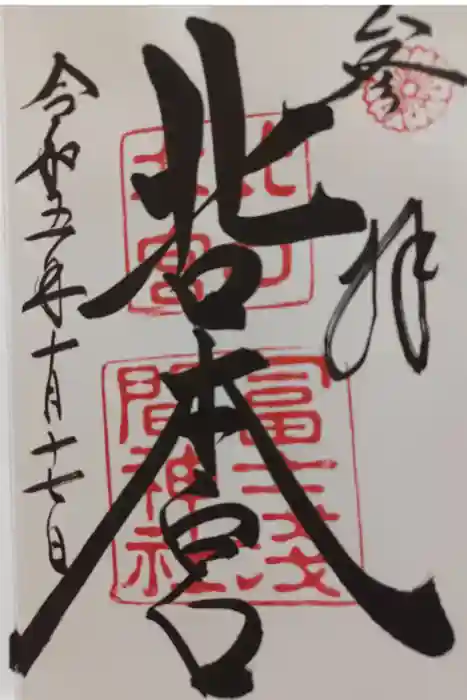 参拝
北口
本宮
冨士浅
間神社
北口本宮
令和五年十月十七日